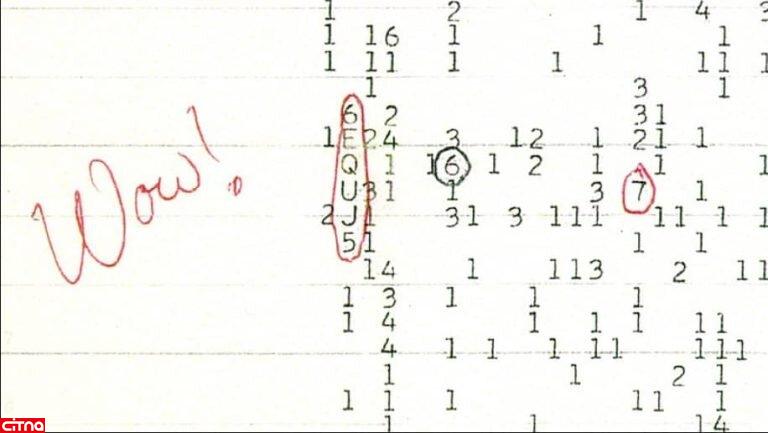 1 2 1 4 3
1 16 1 1 1
1 11 1 1 11 1
1 3 1
6 2 31
1 E24 3 12 1 21 1
Q 1 16 1 2 1 1 1
U31 1 3 7 1
2J1 31 3 111 11 1 1
51 1 1
14 1 113 2 11
1 3 1 1 1
1 4 1 1 1 11
4 1 1 1 11 111
1 1 2 1
1 1 1 11 1
1 1 14
Wow!
citna